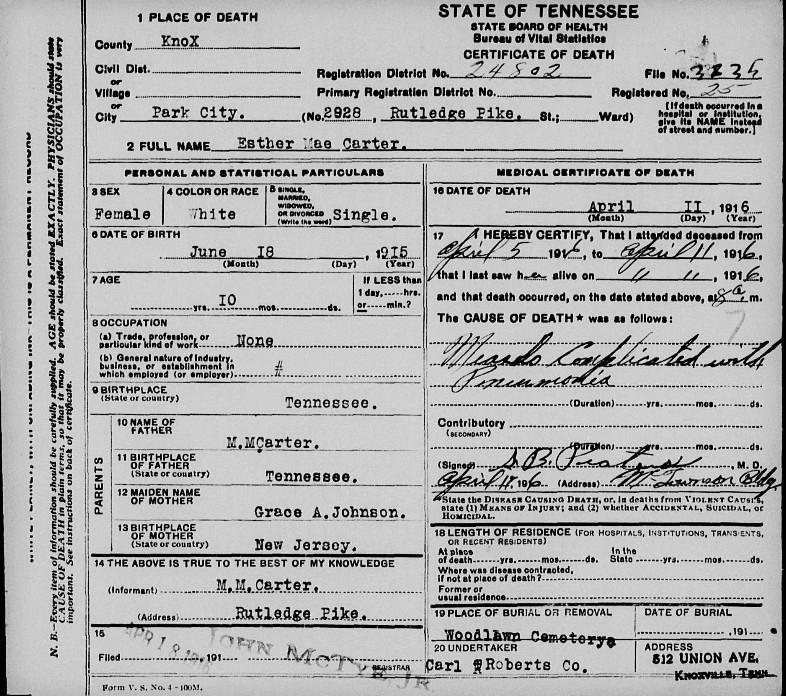 1 PLACE OF DEATH
County KnoX
Civil Dist.
or
Village
or
City Park City. (No. 2928, Rutledge Pike. St.; Ward)
STATE OF TENNESSEE
STATE BOARD OF HEALTH
Bureau of Vital Statistics
CERTIFICATE OF DEATH
Registration District No. 24802 File No.
Primary Registration District No. Registered No. 25
[If death occurred in a
hospital or institution,
give its NAME instead
of street and number.]
2 FULL NAME Esther Mae Carter.
PERSONAL AND STATISTICAL PARTICULARS
3 SEX
Female
4 COLOR OR RACE
White
5 SINGLE,
MARRIED,
WIDOWED,
OR DIVORCED
(Write the word) Single.
6 DATE OF BIRTH
June I8, 1915
(Month) (Day) (Year)
7 AGE
yrs. I0 mos. ds.
If LESS than
1 day, hrs.
or min.?
8 OCCUPATION
(a) Trade, profession, or
particular kind of work None
(b) General nature of industry,
business, or establishment in
which employed (or employer) #
9 BIRTHPLACE
(State or country) Tennessee.
PARENTS
10 NAME OF
FATHER M.MCarter.
11 BIRTHPLACE
OF FATHER
(State or country) Tennessee.
12 MAIDEN NAME
OF MOTHER Grace A.Johnson.
13 BIRTHPLACE
OF MOTHER
(State or country) New Jersey.
14 THE ABOVE IS TRUE TO THE BEST OF MY KNOWLEDGE
(Informant) M.M.Carter.
(Address) Rutledge Pike.
15
Filed 191 JOHN McTYE JR
REGISTRAR
Form V. S. No. 4-100M.
MEDICAL CERTIFICATE OF DEATH
16 DATE OF DEATH
April II, 1916
(Month) (Day) (Year)
17 I HEREBY CERTIFY, That I attended deceased from
April 5 1916, to April 11, 1916,
that I last saw her alive on " ", 1916
and that death occurred, on the date stated above, at 8 a m.
The CAUSE OF DEATH* was as follows:
7
Measles Complicated with
Pneumonia
(Duration) yrs. mos. ds.
Contributory
(SECONDARY)
(Duration) yrs. mos. ds.
(Signed) S. B. , M. D.
April 191 6 (Address) Bldg
*State the DISEASE CAUSING DEATH, or, in deaths from VIOLENT CAUSES,
state (1) MEANS OF INJURY; and (2) whether ACCIDENTAL, SUICIDAL, or
HOMICIDAL.
18 LENGTH OF RESIDENCE (FOR HOSPITALS, INSTITUTIONS, TRANSIENTS,
OR RECENT RESIDENTS)
At place
of death yrs. mos. ds. In the
State yrs. mos. ds.
Where was disease contracted,
if not at place of death?
Former or
usual residence
19 PLACE OF BURIAL OR REMOVAL
Woodlawn Cemeterye
DATE OF BURIAL
, 191
20 UNDERTAKER
Carl Roberts Co.
ADDRESS
512 UNION AVE.
KNOXVILLE, TENN.
N. B.—Every item of information should be carefully supplied. AGE should be stated EXACTLY. PHYSICIANS should state
CAUSE OF DEATH in plain terms, so that it may be properly classified. Exact statement of OCCUPATION is very
important. See instructions on back of certificate.